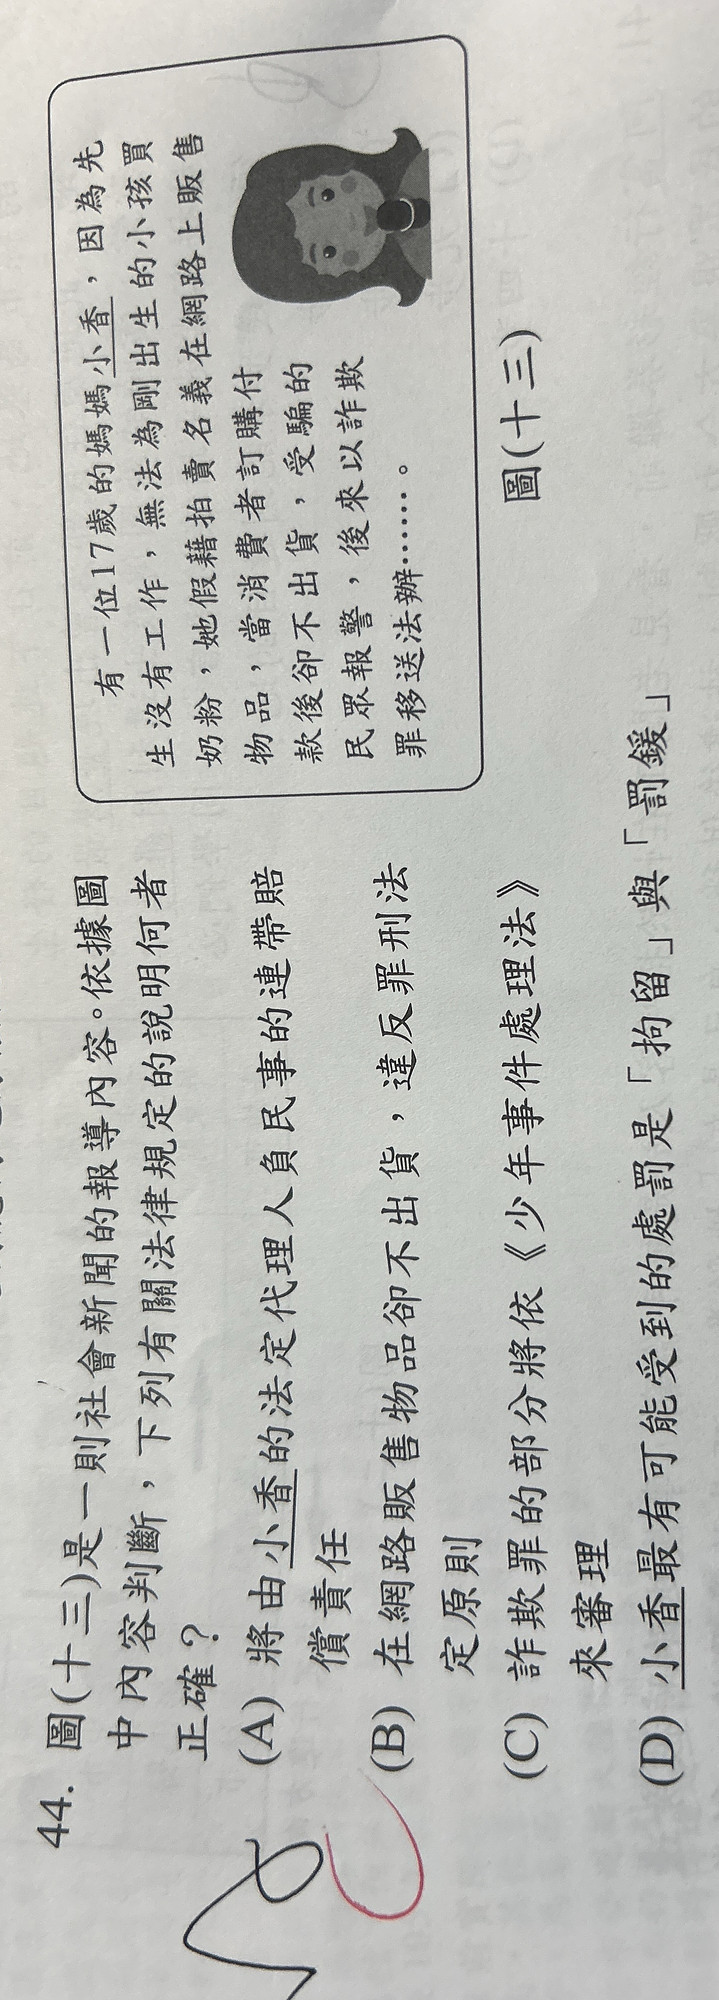 44. 圖(十三)是一則社會新聞的報導內容。依據圖
中內容判斷，下列有關法律規定的說明何者
正確？
(A) 將由小香的法定代理人負民事的連帶賠
償責任
(B) 在網路販售物品卻不出貨，違反罪刑法
定原則
(C) 詐欺罪的部分將依《少年事件處理法》
來審理
(D) 小香最有可能受到的處罰是「拘留」與「罰鍰」
有一位17歲的媽媽小香，因為先
生沒有工作，無法為剛出生的小孩買
奶粉，她假藉拍賣名義在網路上販售
物品，當消費者訂購付
款後卻不出貨，受騙的
民眾報警，後來以詐欺
罪移送法辦……。
圖(十三)